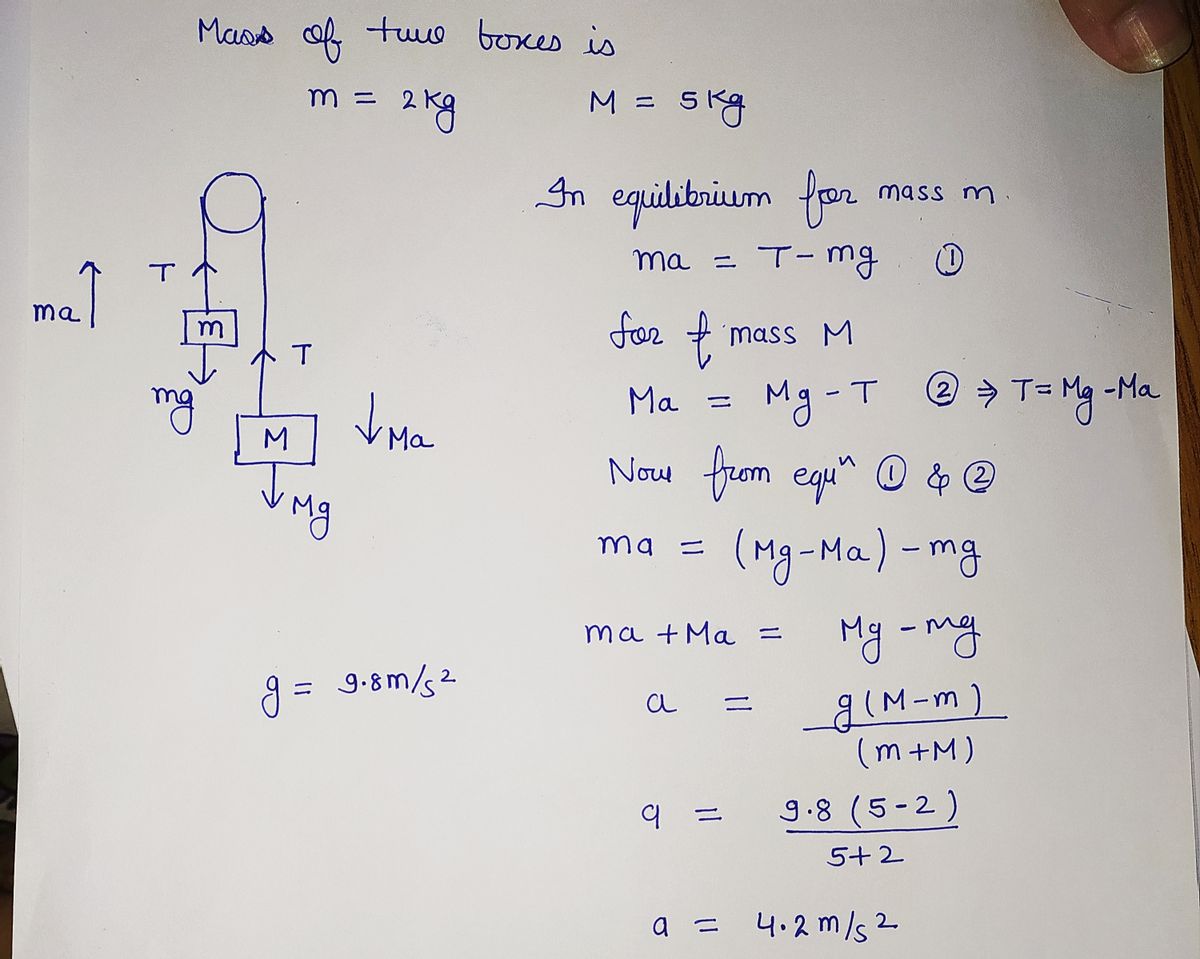 Mass of two boxes is
m = 2 Kg M = 5 Kg
In equilibrium for mass m.
ma = T - mg ①
for mass M
Ma = Mg - T ② ⇒ T = Mg - Ma
Now from equⁿ ① & ②
ma = (Mg - Ma) - mg
ma + Ma = Mg - mg
a = g(M - m) / (m + M)
a = 9.8 (5 - 2) / 5 + 2
a = 4.2 m/s2
ma
T
m
mg
T
M
Ma
Mg
g = 9.8 m/s2